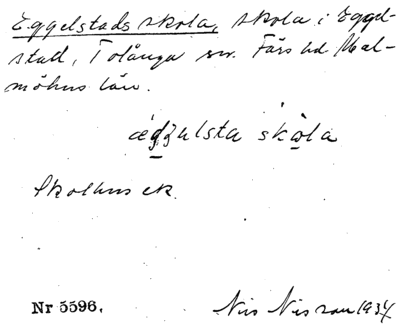 Eggelstads skola, skola i Eggel-
stad, Tolånga sn. Färs hd Mal-
möhus län.
skola
Skolhus
Nr 5596. Nils Nilsson 1934